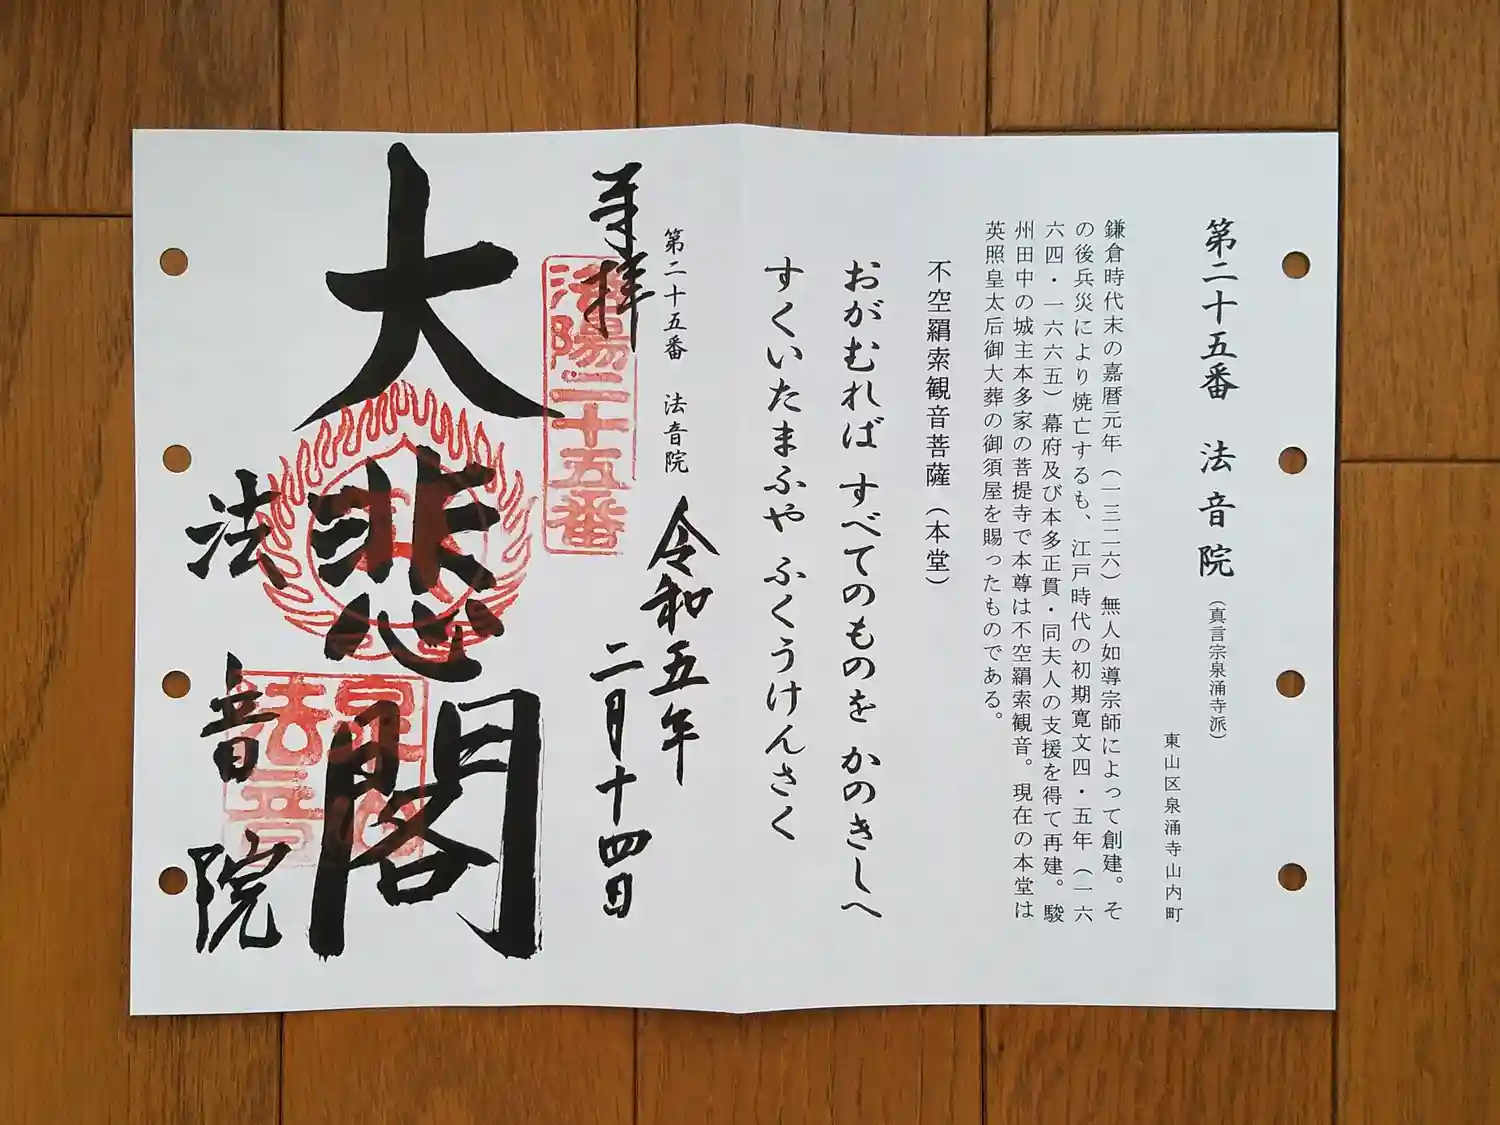 第二十五番 法音院 (真言宗泉涌寺派)
東山区泉涌寺山内町
鎌倉時代末の嘉暦元年(一三二六)無人如導宗師によって創建。そ
の後兵災により焼亡するも、江戸時代の初期寛文四・五年(一六
六四・一六六五)幕府及び本多正貫・同夫人の支援を得て再建。駿
州田中の城主本多家の菩提寺で本尊は不空羂索観音。現在の本堂は
英照皇太后御大葬の御須屋を賜ったものである。
不空羂索観音菩薩(本堂)
おがむれば すべてのものを かのきしへ
すくいたまふや ふくうけんさく
第二十五番 法音院
令和五年
二月十四日
奉拝
洛陽二十五番
大悲閣
法音院